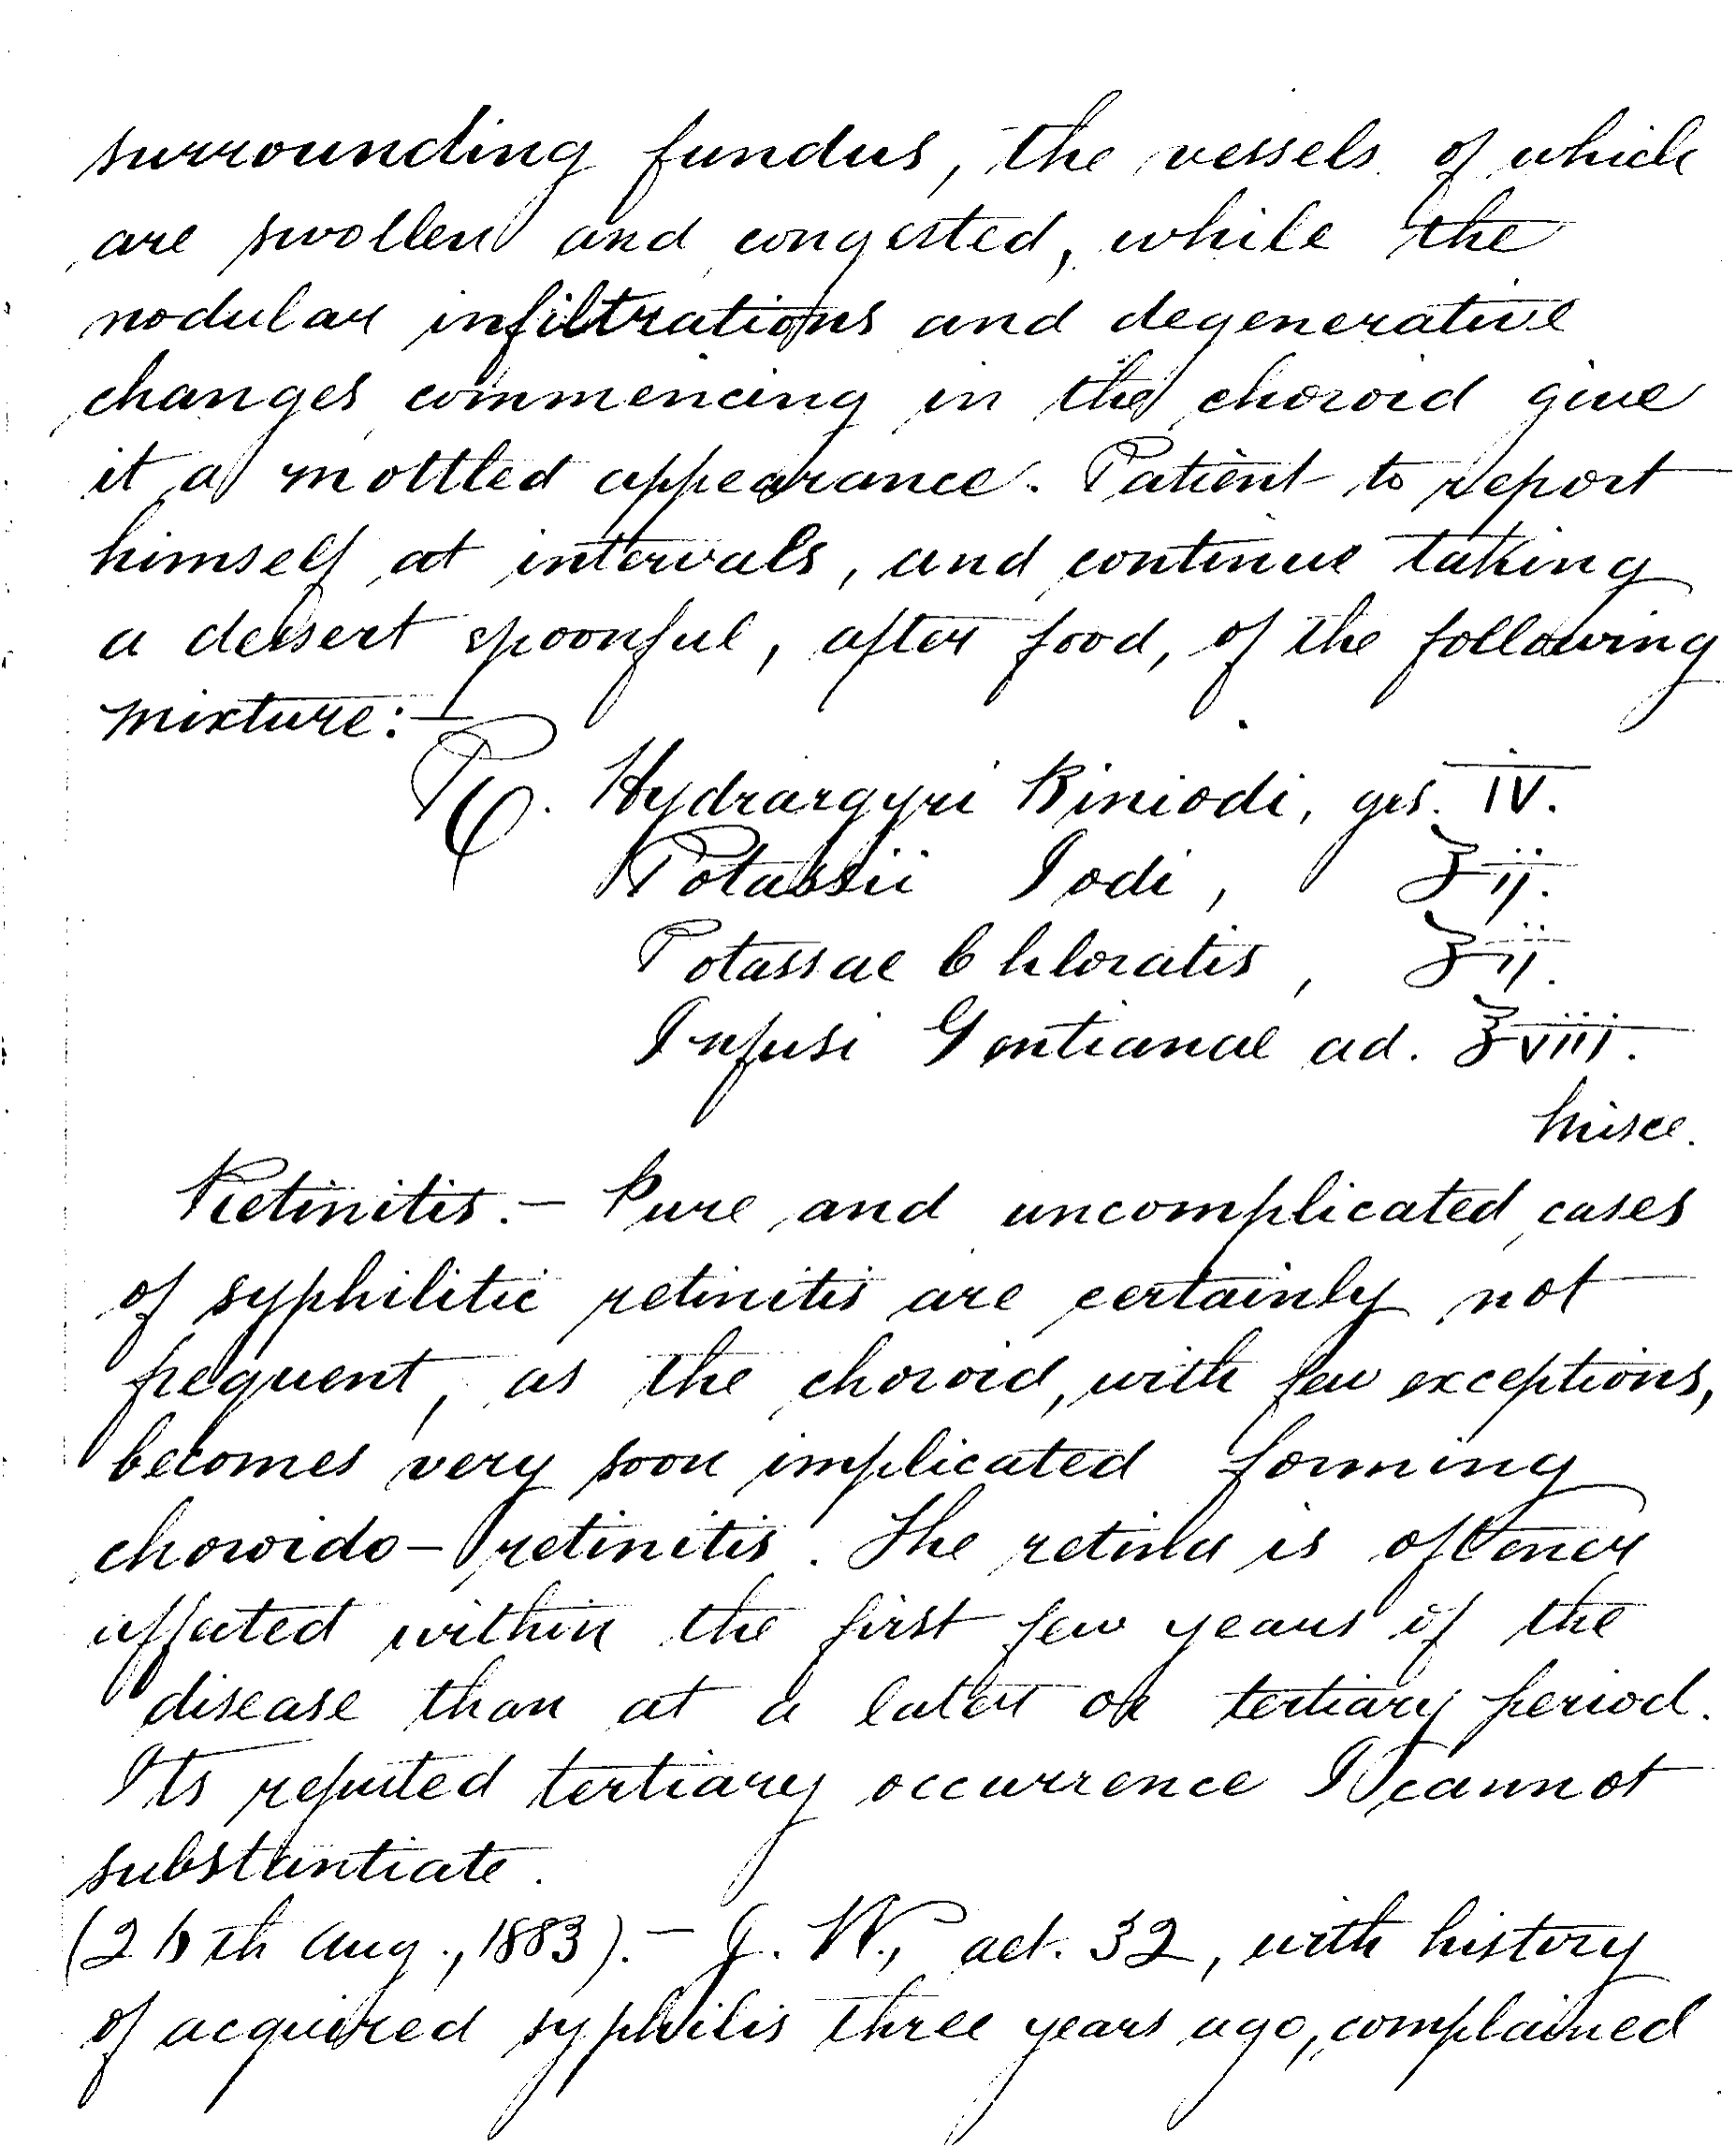 surrounding fundus, the vessels of which
are swollen and congested, while the
nodular infiltrations and degenerative
changes commencing in the choroid give
it a mottled appearance. Patient to report
himself at intervals, and continue taking
a dessert spoonful, after food, of the following
mixture:—
℞. Hydrargyri Biniodi, grs. iv.
Potassii Iodi, ʒij.
Potassae Chloratis, ʒij.
Infusi Gentianae ad. ℥viii.
Misce.
Retinitis.— Pure and uncomplicated cases
of syphilitic retinitis are certainly not
frequent, as the choroid, with few exceptions,
becomes very soon implicated forming
choroido-retinitis. The retina is oftener
affected within the first few years of the
disease than at a later or tertiary period.
Its reputed tertiary occurrence I cannot
substantiate.
(26th Aug., 1883).— J. W., aet. 32, with history
of acquired syphilis three years ago, complained